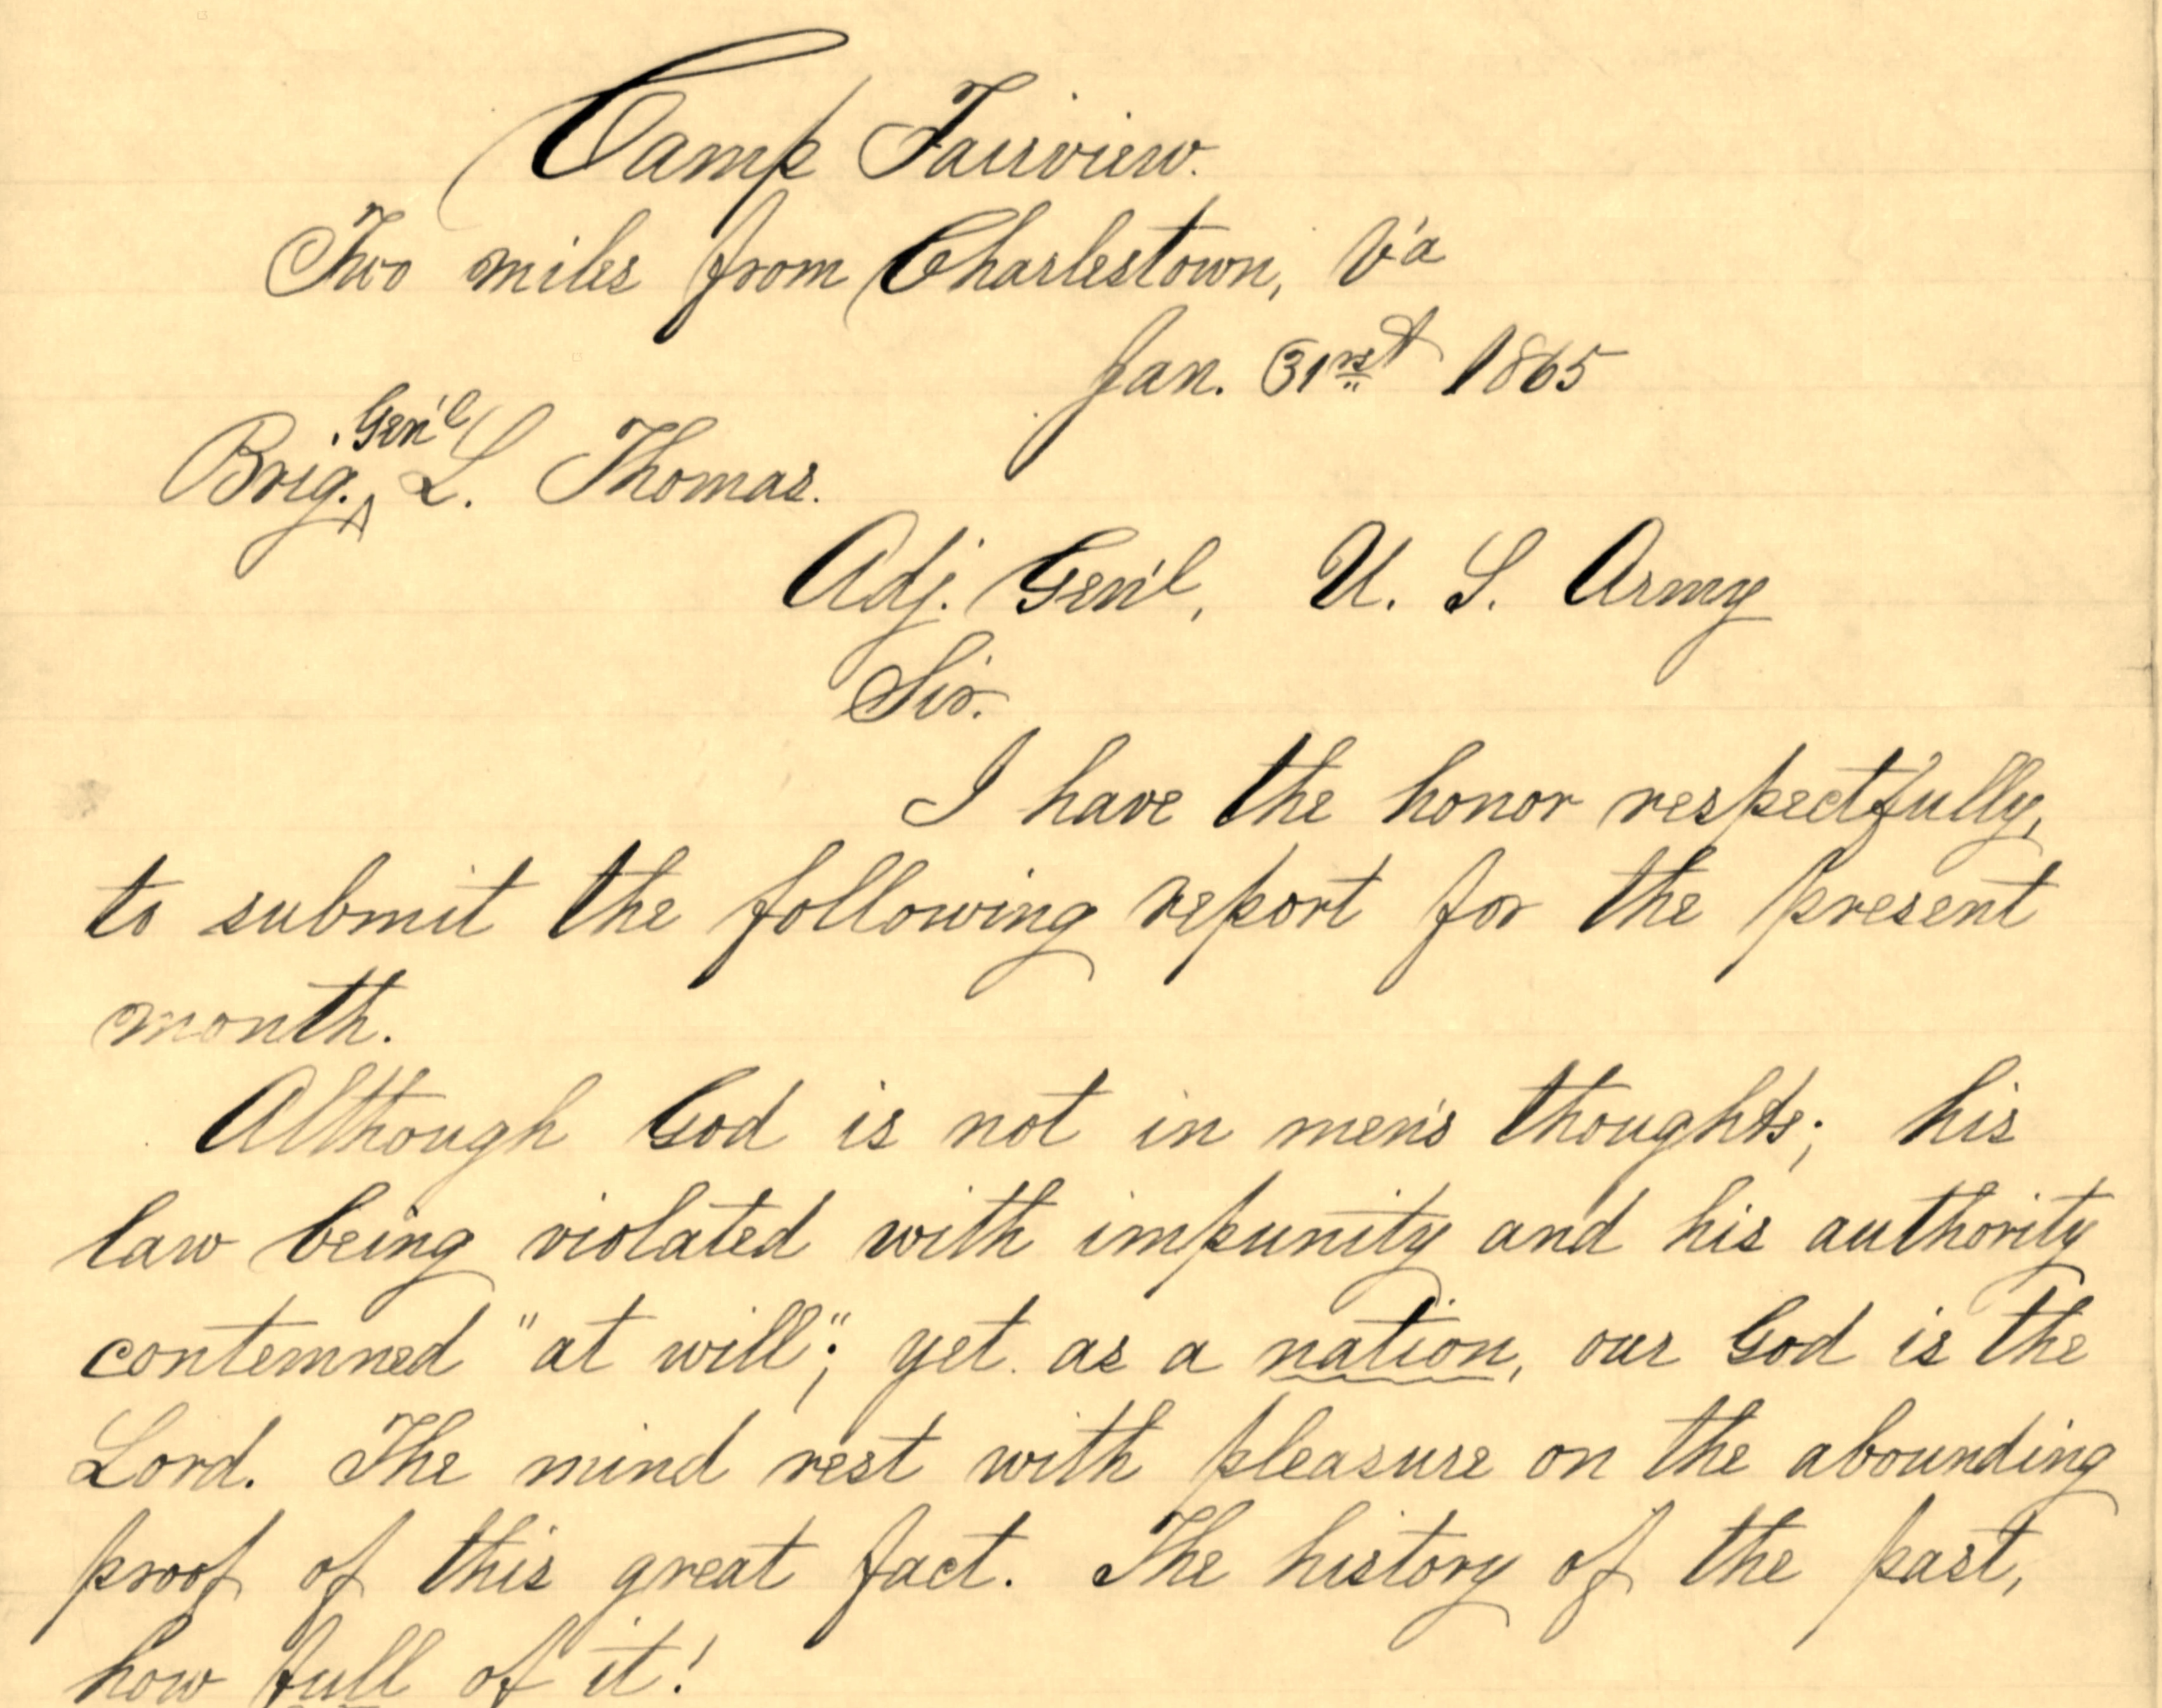 Camp Fairview.
Two miles from Charlestown, V'a
Jan. 31rst 1865
Brig. Gen'l L. Thomas.
Adj. Gen'l, U. S. Army
Sir.
I have the honor respectfully,
to submit the following report for the present
month.
Although God is not in men's thoughts; his
law being violated with impunity and his authority
contemned "at will"; yet as a nation, our God is the
Lord. The mind rest with pleasure on the abounding
proof of this great fact. The history of the past,
how full of it!